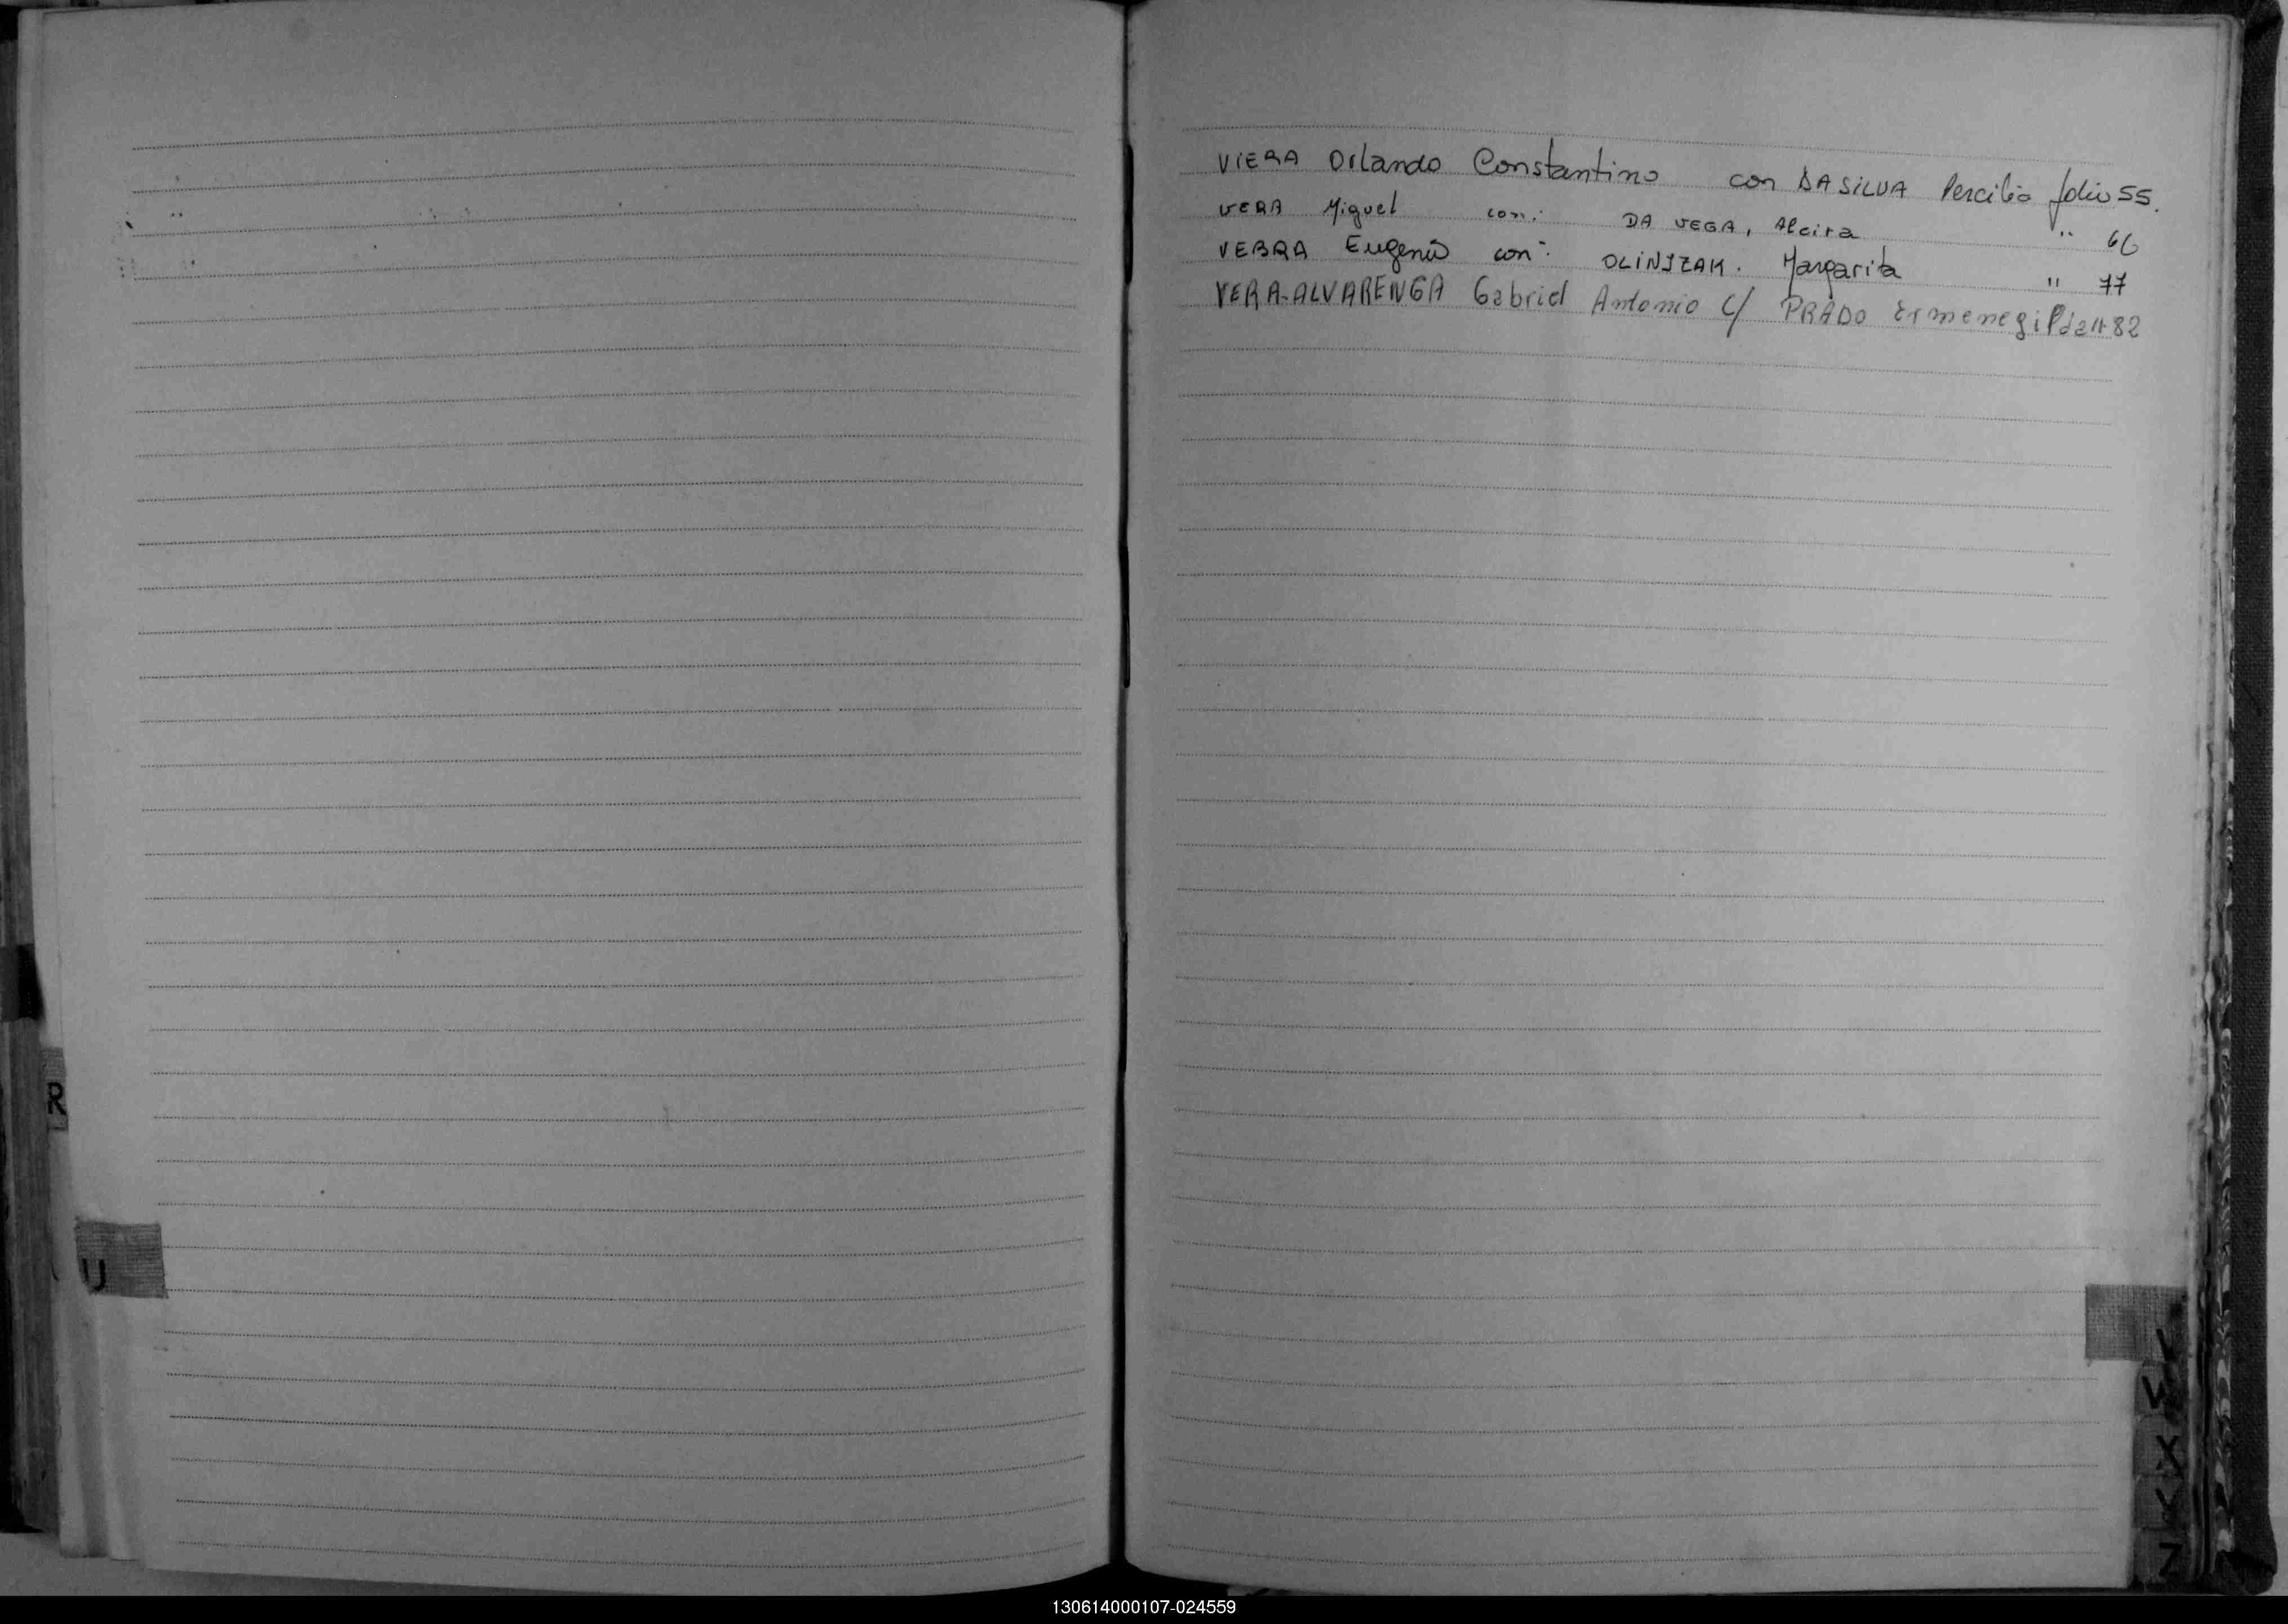 VIERA Orlando Constantino con DASILVA Percilia folio 55.
VERA Miguel con: DA VEGA, Alcira " 66
VEBRA Eugenio con: OLINSZAK. Margarita " 77
VERA-ALVARENGA Gabriel Antonio c/ PRADO Ermenegilda " 82
R
U
V
W
X
Y
Z
130614000107-024559